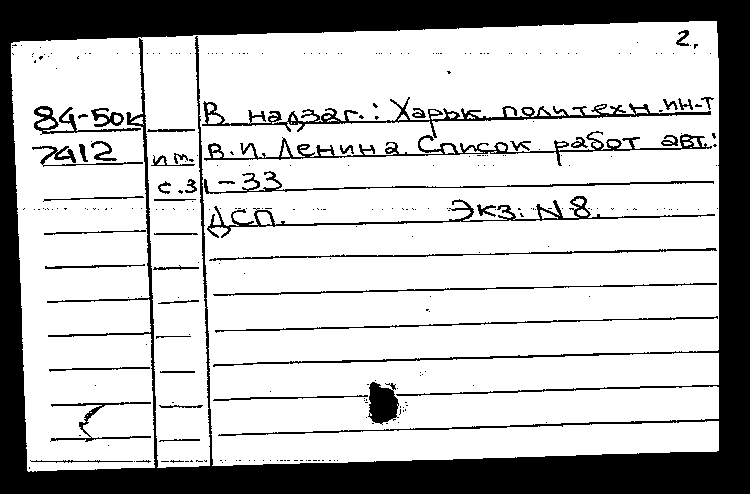 2.
84-50к В надзаг.: Харьк. политехн. ин-т
7412 им. В.И. Ленина. Список работ авт.:
с.31-33
ДСП. Экз: N 8.